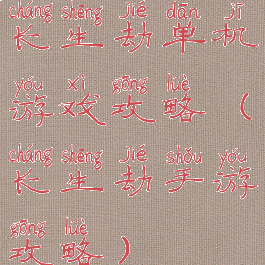 cháng shēng jié dān jī
长生劫单机
yóu xì gōng lüè
游戏攻略（
cháng shēng jié shǒu yóu
长生劫手游
gōng lüè
攻略）